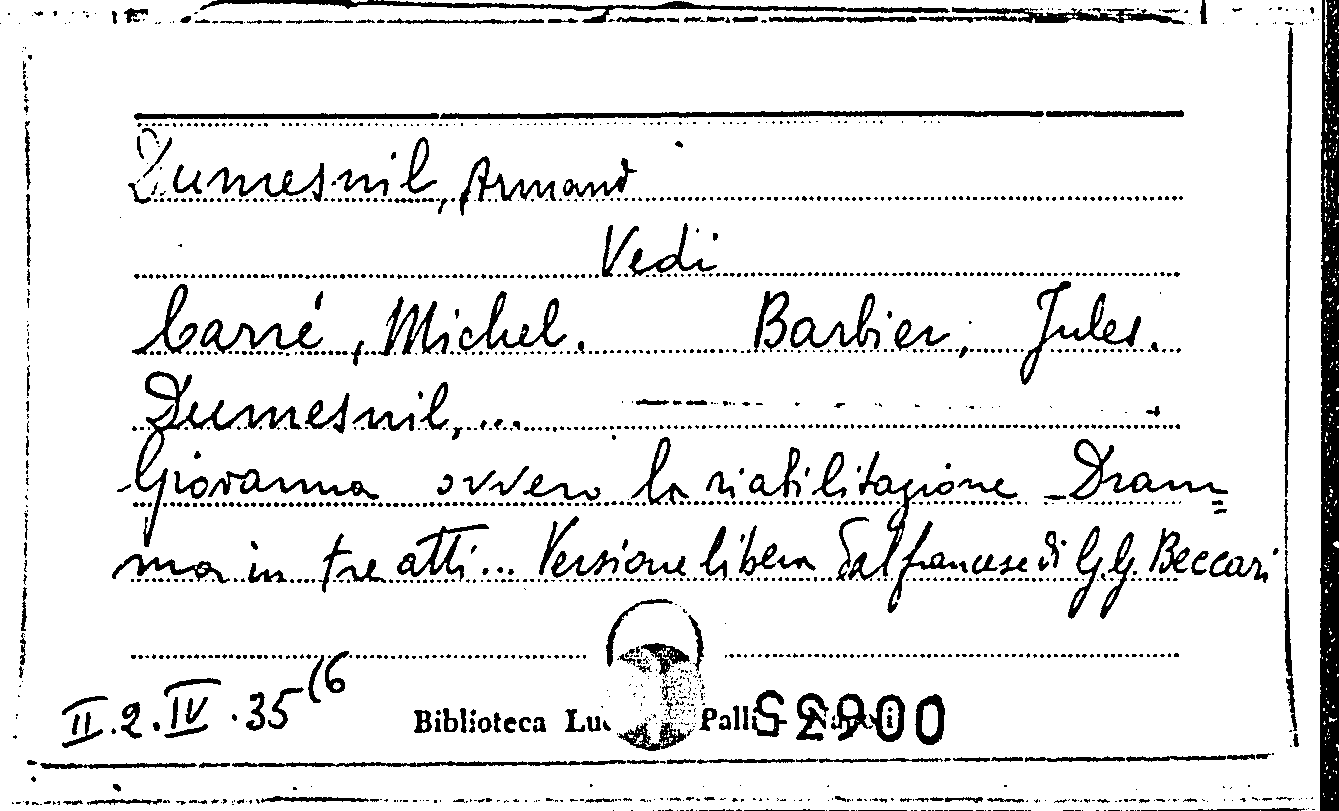 Dumesnil, Armand
Vedi
Carré, Michel. Barbier, Jules.
Dumesnil, ...
Giovanna ovvero la riabilitazione - Dram=
ma in tre atti... Versione libera dal francese di G.G. Beccari
II.2.IV.35(6
Biblioteca Palli